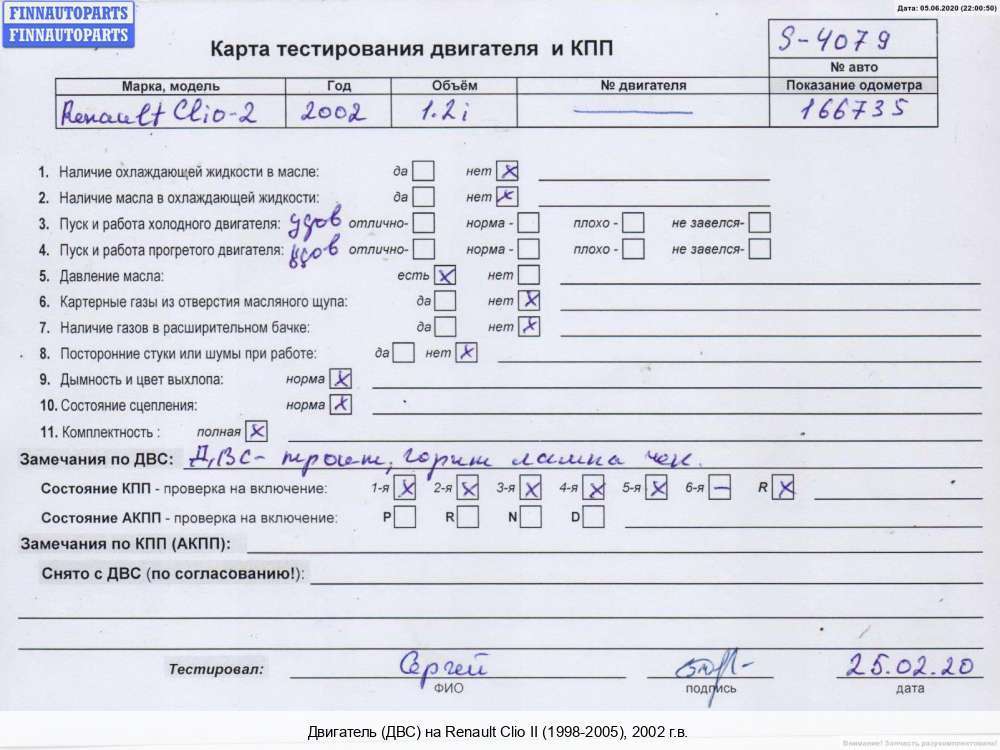 FINNAUTOPARTS
FINNAUTOPARTS
Дата: 05.06.2020 (22:00:50)
Карта тестирования двигателя и КПП
S-4079
№ авто
Марка, модель Год Объём № двигателя Показание одометра
Renault Clio-2 2002 1.2i — 166735
1. Наличие охлаждающей жидкости в масле: да нет X
2. Наличие масла в охлаждающей жидкости: да нет X
3. Пуск и работа холодного двигателя: удов отлично- норма - плохо - не завелся-
4. Пуск и работа прогретого двигателя: удов отлично- норма - плохо - не завелся-
5. Давление масла: есть X нет
6. Картерные газы из отверстия масляного щупа: да нет X
7. Наличие газов в расширительном бачке: да нет X
8. Посторонние стуки или шумы при работе: да нет X
9. Дымность и цвет выхлопа: норма X
10. Состояние сцепления: норма X
11. Комплектность : полная X
Замечания по ДВС: ДВС- троит, горит лампа чек.
Состояние КПП - проверка на включение: 1-я X 2-я X 3-я X 4-я X 5-я X 6-я — R X
Состояние АКПП - проверка на включение: P R N D
Замечания по КПП (АКПП):
Снято с ДВС (по согласованию!):
Тестировал: Сергей 25.02.20
ФИО подпись дата
Двигатель (ДВС) на Renault Clio II (1998-2005), 2002 г.в.
Внимание! Запчасть разукомплектована!